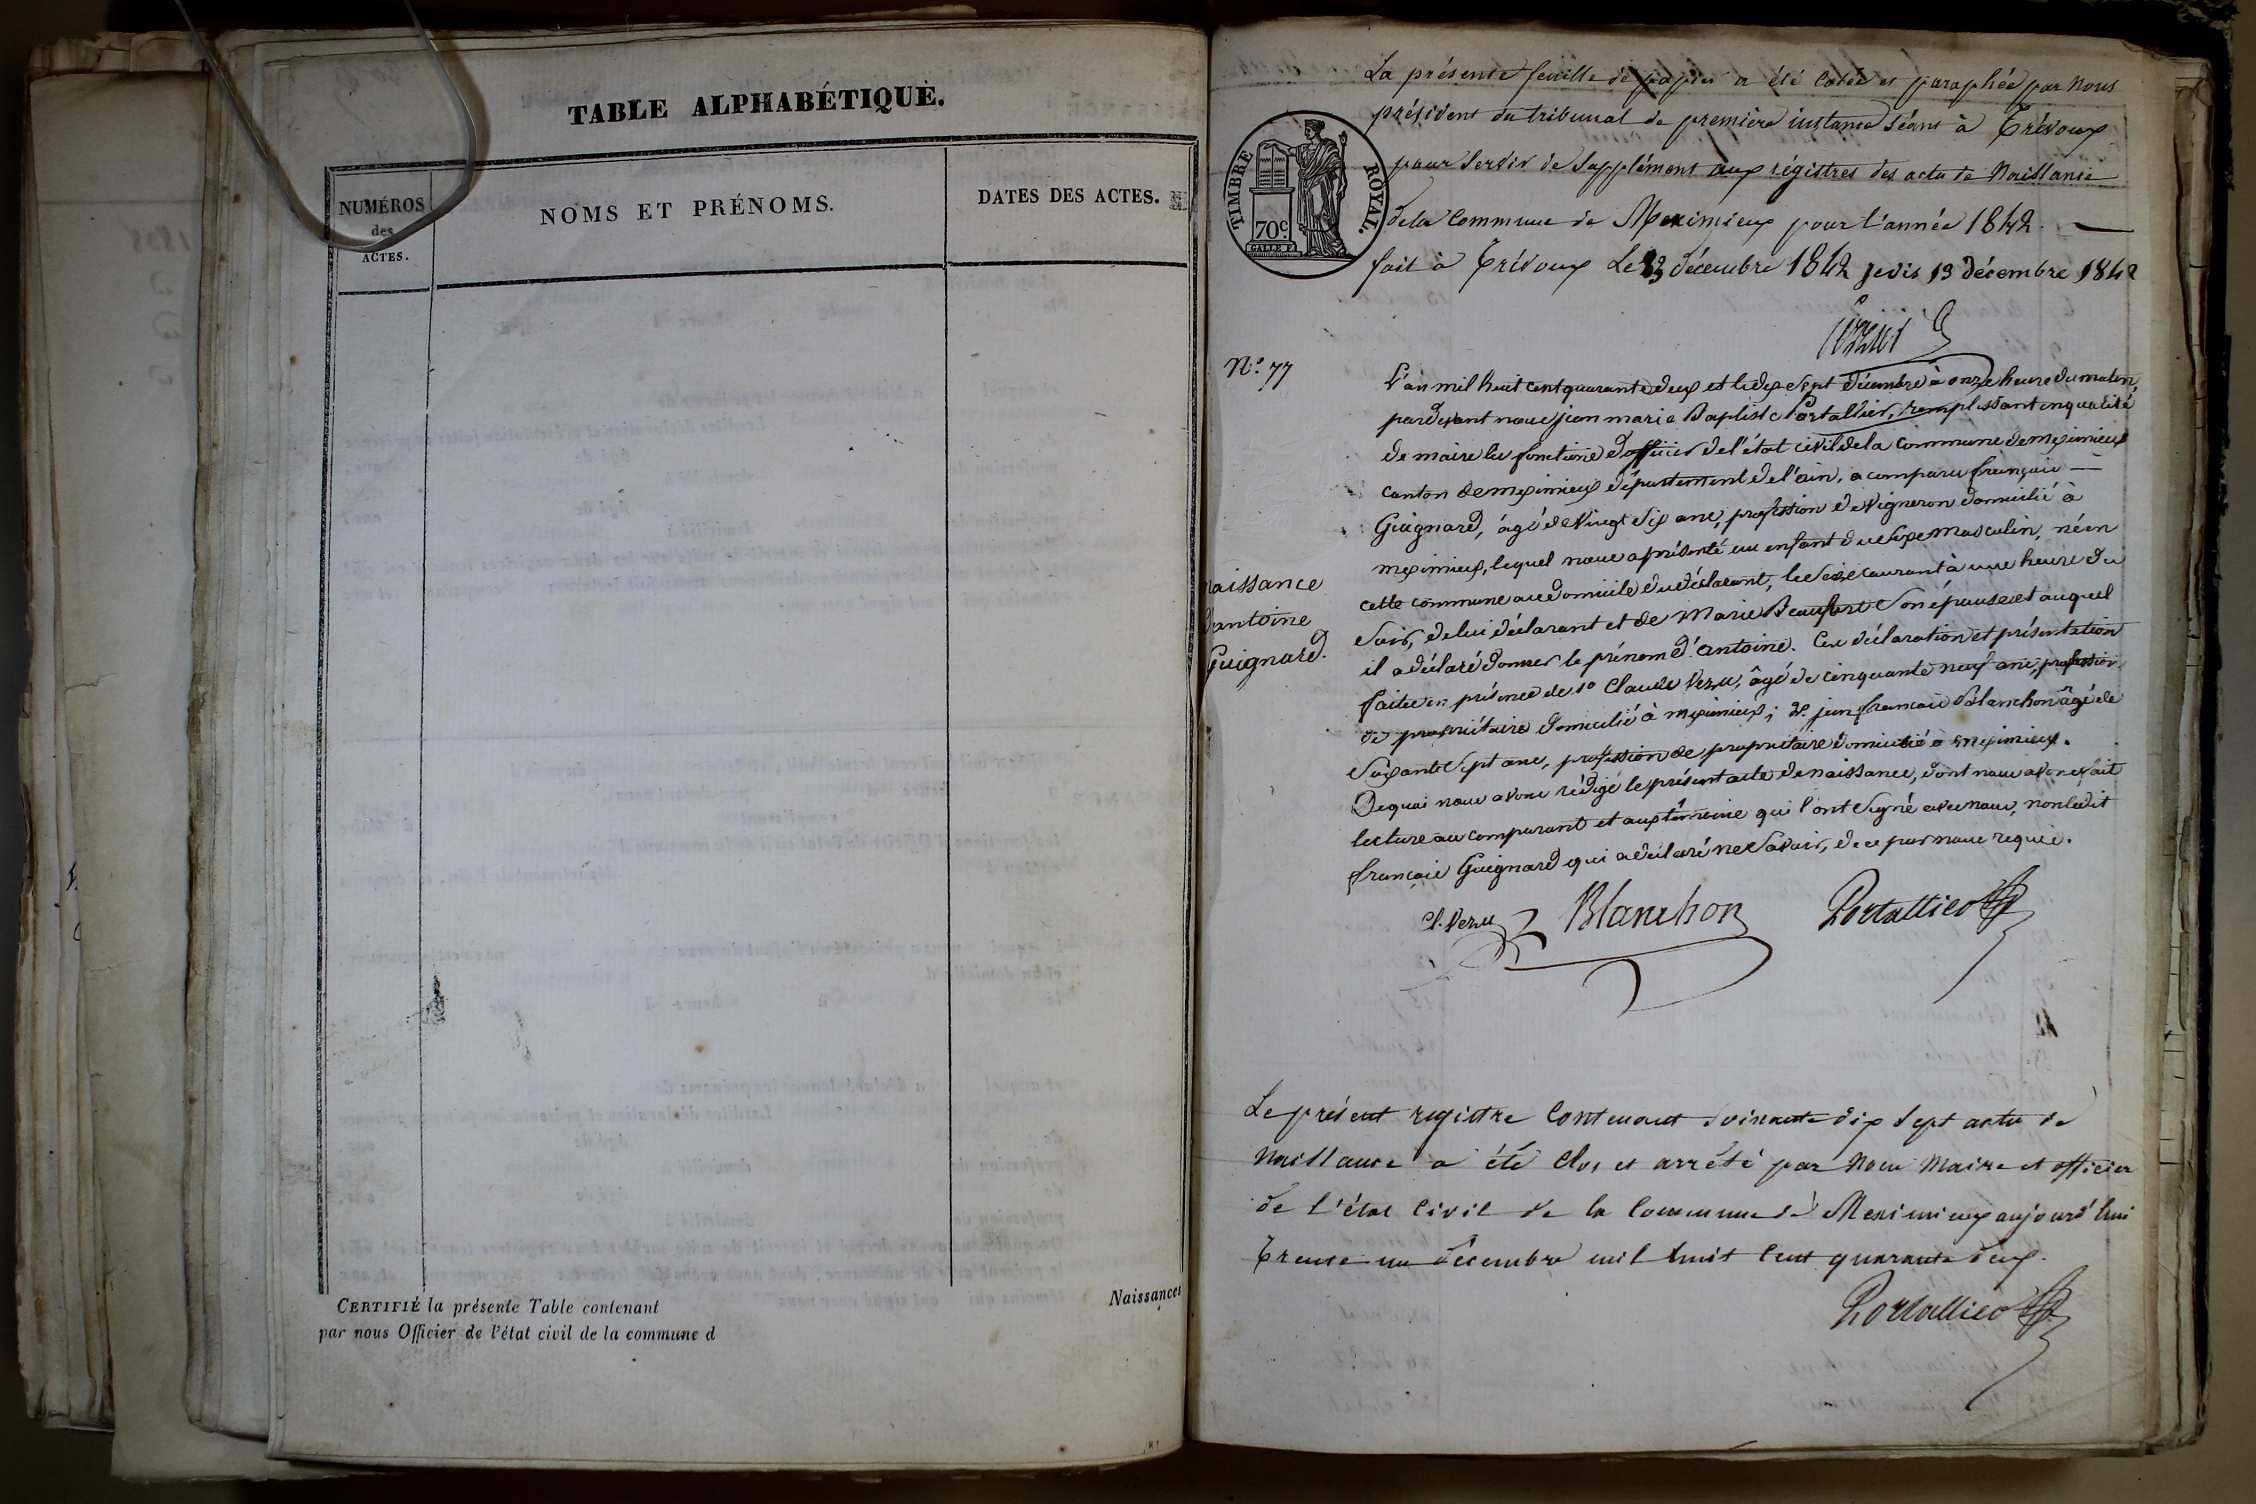 TABLE ALPHABÉTIQUE.
NUMÉROS
des
ACTES.
NOMS ET PRÉNOMS.
DATES DES ACTES.
CERTIFIÉ la présente Table contenant
Naissances
par nous Officier de l'état civil de la commune d
La présente feuille de papier a été cotée et paraphée par Nous
président du tribunal de première instance séant à Trévoux
pour servir de supplément aux régistres des actes de Naissance
de la commune de Meximieux pour l'année 1842.
fait à Trévoux Le 13 décembre 1842 13 décembre 1842
TIMBRE ROYAL.
70c.
N.º 77
naissance
d'antoine
Guignard.
L'an mil huit cent quarante deux et le dix Sept décembre à onze heure du matin,
pardevant nous jean marie Baptiste Portallier, remplissant en qualité
de maire les fonctions d'officier de l'état civil de la commune de meximieux
canton de meximieux département de l'ain, a comparu françois
Guignard, âgé de vingt Six ans, profession de vigneron domicilié à
meximieux, lequel nous a présenté un enfant du Sexe masculin, né en
cette commune au domicile du déclarant, le Seize courant à une heure du
Soir, de lui déclarant et de Marie Beaufort Son épouse et auquel
il a déclaré donner le prénom d'antoine. Ces déclaration et présentation
faites en présence de 1º Claude Vezu, âgé de cinquante neuf ans, profession
de propriétaire domicilié à meximieux; 2º jean françois Blanchon âgé de
Soixante Sept ans, profession de propriétaire domicilié à meximieux.
De quoi nous avons rédigé le présent acte de naissance, dont nous avons fait
lecture au comparant et aux témoins qui l'ont Signé avec nous, non ledit
françois Guignard qui a déclaré ne Savoir, de ce par nous requis.
Cl. Vezu Blanchon Portallier
Le présent registre contenant soixante dix sept actes de
Naissance a été clos et arrêté par Nous Maire et officier
de l'état civil de la commune de Meximieux aujourd'hui
trente un décembre mil huit cent quarante deux.
Portallier